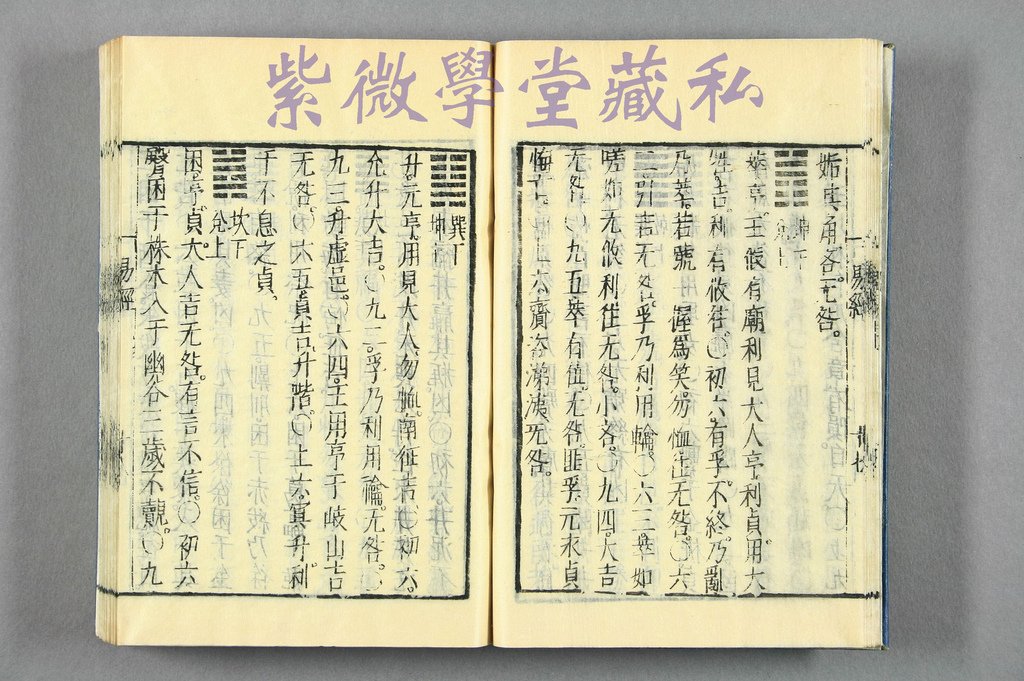 紫微學堂藏私
易經
姤其角吝。无咎。
坤下
萃亨。王假有廟利見大人亨利貞。用大
牲吉。利有攸往。〇初六有孚。不終乃亂
乃萃。若號 握為笑。勿恤往无咎。〇六
二引吉无咎。孚乃利用禴。〇六三萃如
嗟如无攸利往无咎。小吝。〇九四。大吉
无咎。〇九五萃有位。无咎。匪孚。元永貞
悔亡。〇上六齎咨涕洟无咎。
巽下
坤上
升。元亨。用見大人。勿恤。南征吉。〇初六。
允升大吉。〇九二。孚乃利用禴。无咎。〇
九三。升虛邑。〇六四。王用亨于岐山吉
无咎。〇六五。貞吉。升階。〇上六。冥升利
于不息之貞。
坎下
兌上
困。亨。貞。大人吉无咎。有言不信。〇初六
臀困于株木入于幽谷三歲不覿。〇九
易經